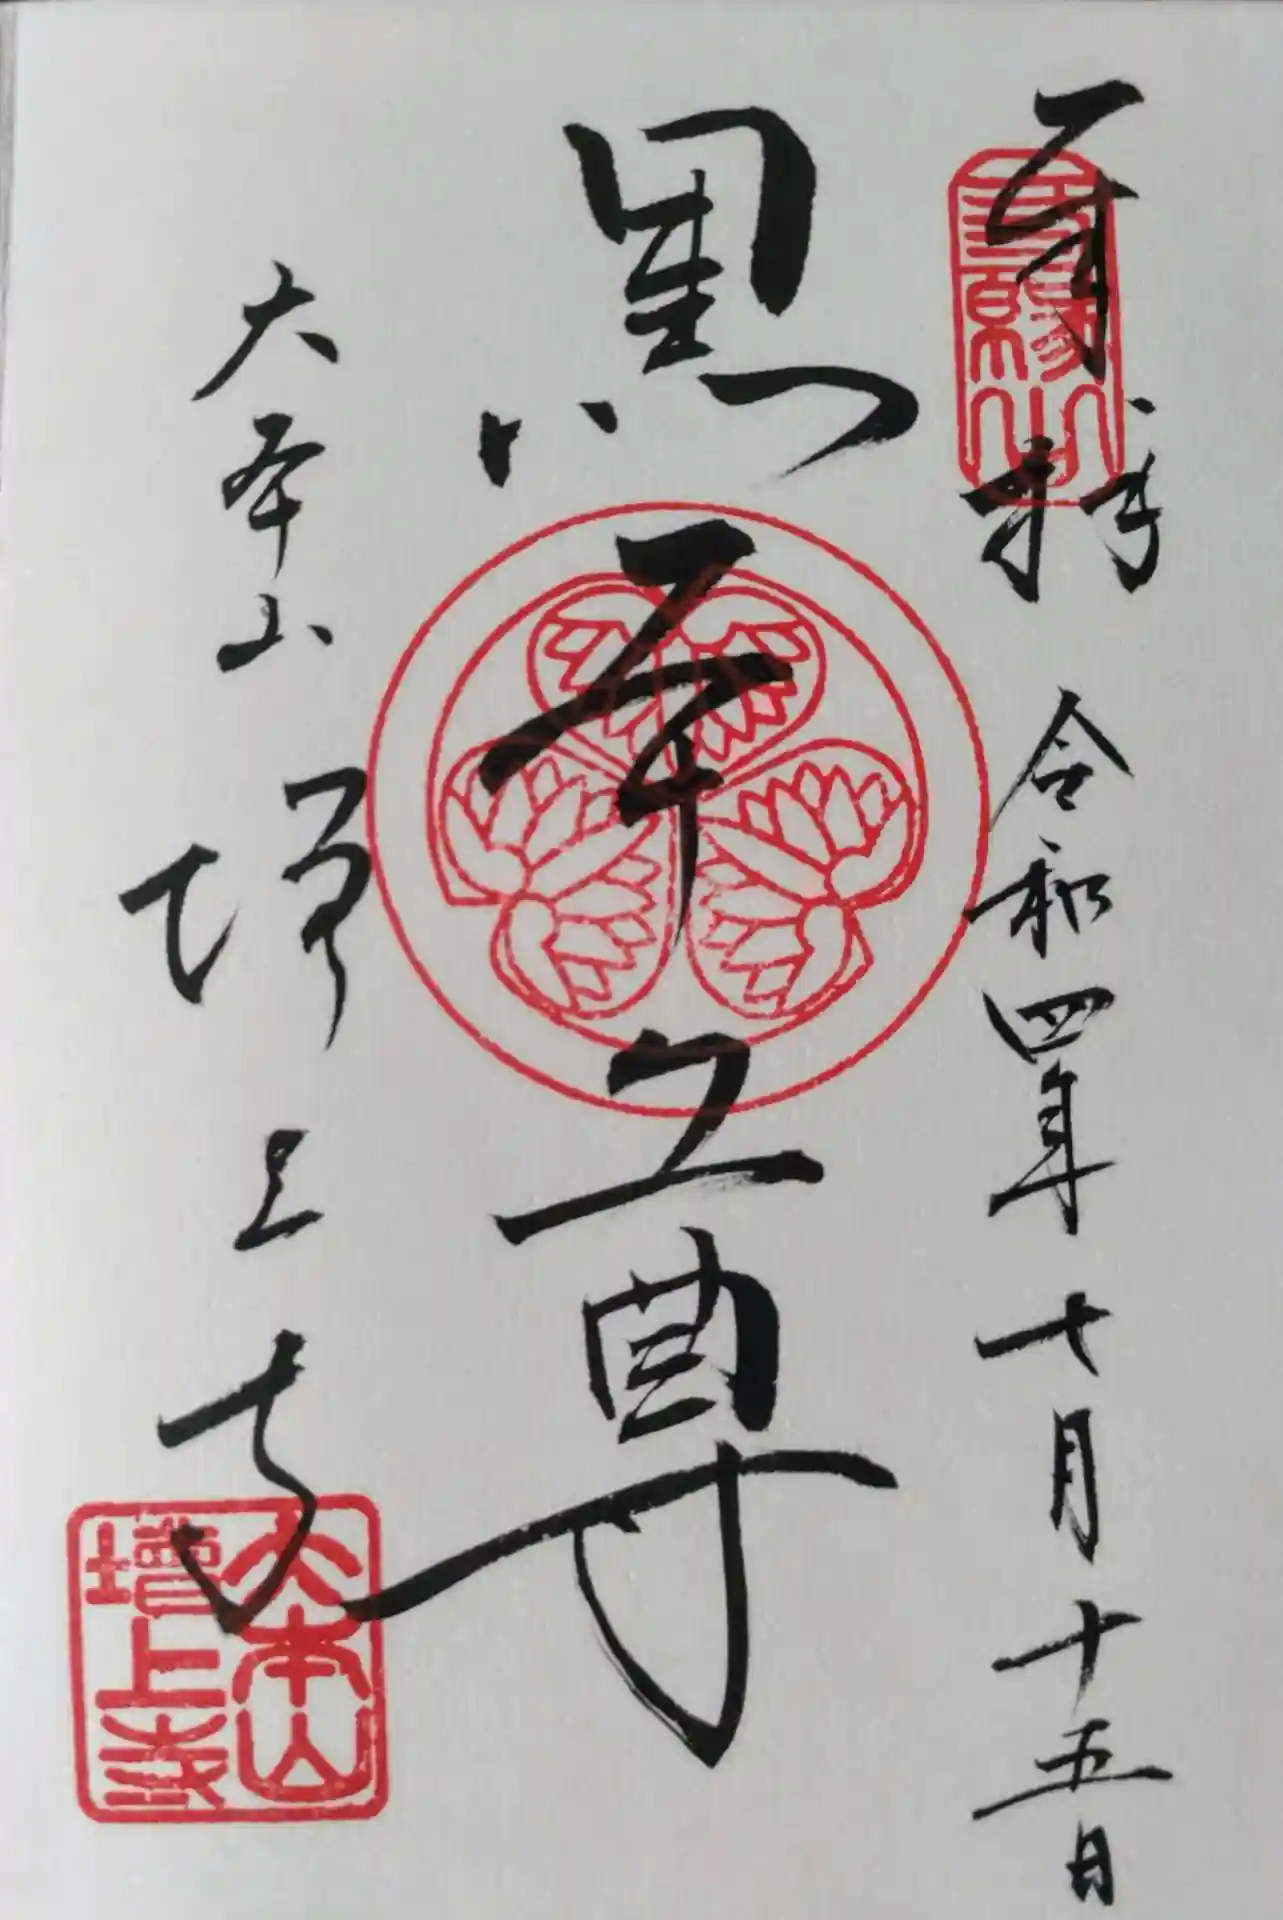 奉拝 令和四年十月十五日
三縁山
黒本尊
大本山 増上寺
大本山
增上寺